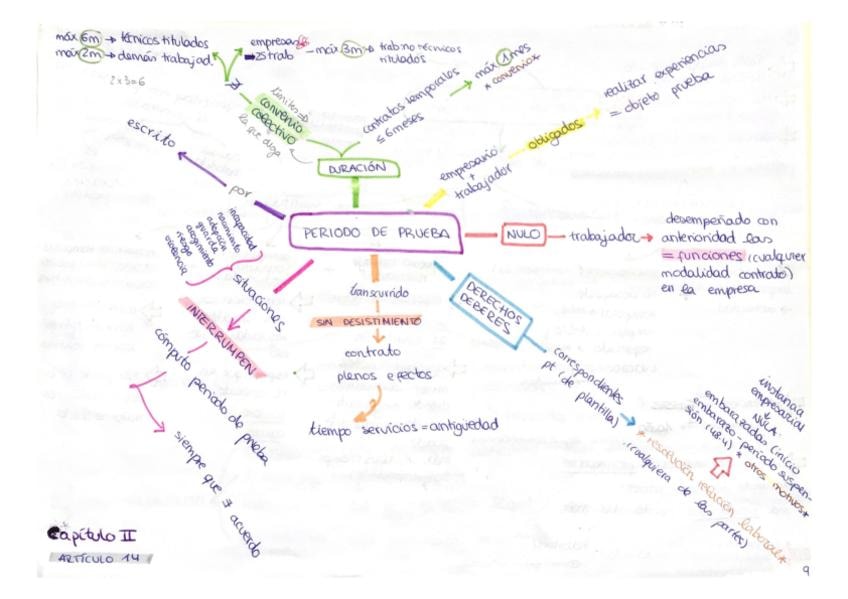 máx 6m → técnicos titulados
máx 2m → demás trabajad.
2x3=6
empresas
25 trab - máx 3m → trab no técnicos
titulados
límites
convenio
colectivo
lo que diga
contratos temporales
≤ 6 meses
máx 1 mes
* convenio *
DURACIÓN
empresario
+
trabajador
obligados
realizar experiencias
= objeto prueba
escrito
por
PERIODO DE PRUEBA
NULO → trabajador →
desempeñado con
anterioridad las
= funciones (cualquier
modalidad contrato)
en la empresa
incapacidad
nacimiento
adopción
guarda
acogimiento
riesgo
violencia
situaciones
INTERRUMPEN
cómputo periodo de prueba
siempre que ∃ acuerdo
transcurrido
SIN DESISTIMIENTO
contrato
plenos efectos
tiempo servicios = antigüedad
DERECHOS
DEBERES
correspondientes
pt (de plantilla)
* resolución relación laboral *
(cualquiera de las partes)
instancia
empresarial
NULA
embarazadas (inicio
embarazo - periodo suspen-
sión (48.4) * otros motivos *
Capítulo II
ARTÍCULO 14
9